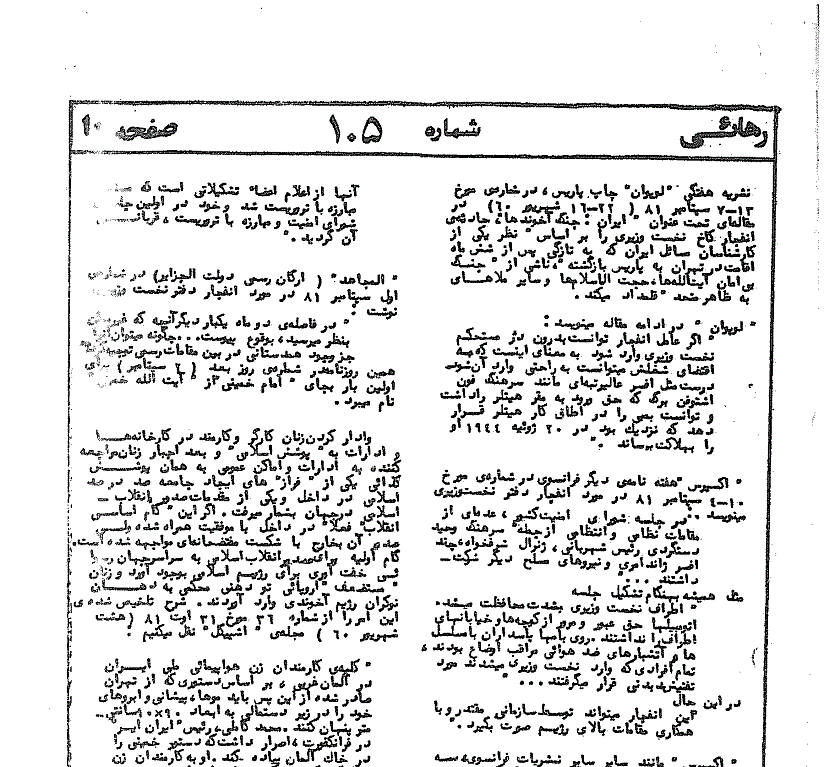 رهائی شماره ۱۰۵ صفحه ۱۰
نشریه هفتگی "لوپوان" چاپ پاریس، در شماره‌ی مورخ
۷-۱۳ سپتامبر ۸۱ (۱۶-۲۲ شهریور ۶۰) در
مقاله‌ای تحت عنوان "ایران: جنگ آخوندها، حادثه‌ی
انفجار کاخ نخست وزیری را بر اساس" نظر یکی از
کارشناسان مسائل ایران که به تازگی پس از شش ماه
اقامت در تهران به پاریس بازگشته"، ناشی از "جنگ
بی‌امان آیت‌الله‌ها، حجت الاسلام‌ها و سایر ملاهای
به ظاهر متحد" قلمداد میکند.
"لوپوان" در ادامه مقاله مینویسد:
"اگر عامل انفجار توانست بدرون دژ مستحکم
نخست وزیری وارد شود به معنای اینست که به
اقتضای شغلش میتوانست به راحتی وارد آن شود.
درست مثل افسر عالیرتبه‌ای مانند سرهنگ فون
اشتوفن برگ که حق ورود به مقر هیتلر را داشت
و توانست بمبی را در اطاق کار هیتلر قرار
دهد که نزدیک بود در ۲۰ ژوئیه ۱۹۴۴ او
را به هلاکت برساند."
"اکسپرس" هفته نامه‌ی دیگر فرانسوی در شماره‌ی مورخ
۴-۱۰ سپتامبر ۸۱ در مورد انفجار دفتر نخست‌وزیری
مینویسد:
"در جلسه شورای امنیت کشور، عده‌ای از
مقامات نظامی و انتظامی از جمله "سرهنگ وحید
دستگردی رئیس شهربانی، ژنرال شرفخواه، چند
افسر ژاندارمری و نیروهای مسلح دیگر شرکت
داشتند..."
مثل همیشه بهنگام تشکیل جلسه
"اطراف نخست وزیری بشدت محافظت میشد.
اتومبیلها حق عبور و مرور از کوچه‌ها و خیابانهای
اطراف را نداشتند. روی بامها پاسداران با مسلسل
ها و آتشبارهای ضد هوائی مراقب اوضاع بودند،
تمام افرادی که وارد نخست وزیری میشدند مورد
تفتیش بدنی قرار میگرفتند..."
در این حال
"این انفجار میتواند توسط سازمانی مقتدر و با
همکاری مقامات بالای رژیم صورت بگیرد."
"اکسپرس" مانند سایر نشریات فرانسوی، سه
آنها از اعلام اعضاء تشکیلاتی است که
مبارزه با تروریست شد و خود در اولین
شورای امنیت و مبارزه با تروریست، قربانی
آن گردید."
"المجاهد" (ارگان رسمی دولت الجزایر) در شماره‌ی
اول سپتامبر ۸۱ در مورد انفجار دفتر نخست
نوشت:
"در فاصله‌ی دو ماه یکبار دیگر آنچه که
بنظر میرسید، بوقوع پیوست... چگونه میتوان
جز وجود همدستانی در بین مقامات رسمی
همین روزنامه در شماره‌ی روز بعد (۲ سپتامبر) برای
اولین بار بجای "امام خمینی" از "آیت الله خمینی"
نام میبرد.
وادار کردن زنان کارگر و کارمند در کارخانه‌ها
و ادارات به "پوشش اسلامی" و بعد اجبار زنان مراجعه
کننده به ادارات و اماکن عمومی به همان پوشش
کذائی یکی از "فراز"های ایجاد جامعه صد در صد
اسلامی در داخل و یکی از مقدمات صدور انقلاب
اسلامی در جهان بشمار میرفت. اگر این "گام اساسی
انقلاب" فعلاً در داخل با موفقیت همراه شده ولی
صدور آن بخارج با شکست مفتضحانه‌ای مواجه شده است.
گام اولیه برای صدور انقلاب اسلامی به سراسر جهان
خفت آوری برای رژیم اسلامی بوجود آورد و زنان
"مستضعف" اروپائی تو دهنی محکمی به دهان
نوکران رژیم آخوندی وارد آوردند. شرح تلخیص شده‌ی
این امر را از شماره ۳۶ مورخ ۳۱ اوت ۸۱ (هشت
شهریور ۶۰) مجله‌ی "اشپیگل" نقل میکنیم.
"کلیه‌ی کارمندان زن هواپیمائی ملی ایران
در آلمان غربی، بر اساس دستوری که از تهران
صادر شده از این پس باید موها، پیشانی و ابروهای
خود را در زیر دستمالی به ابعاد ۹۰×۹۰ سانتی‌
متر پنهان کنند. محمد کاملی، رئیس "ایران ایر"
در فرانکفورت، اصرار داشت که دستور خمینی را
در خاک آلمان پیاده کند. او به کارمندان زن